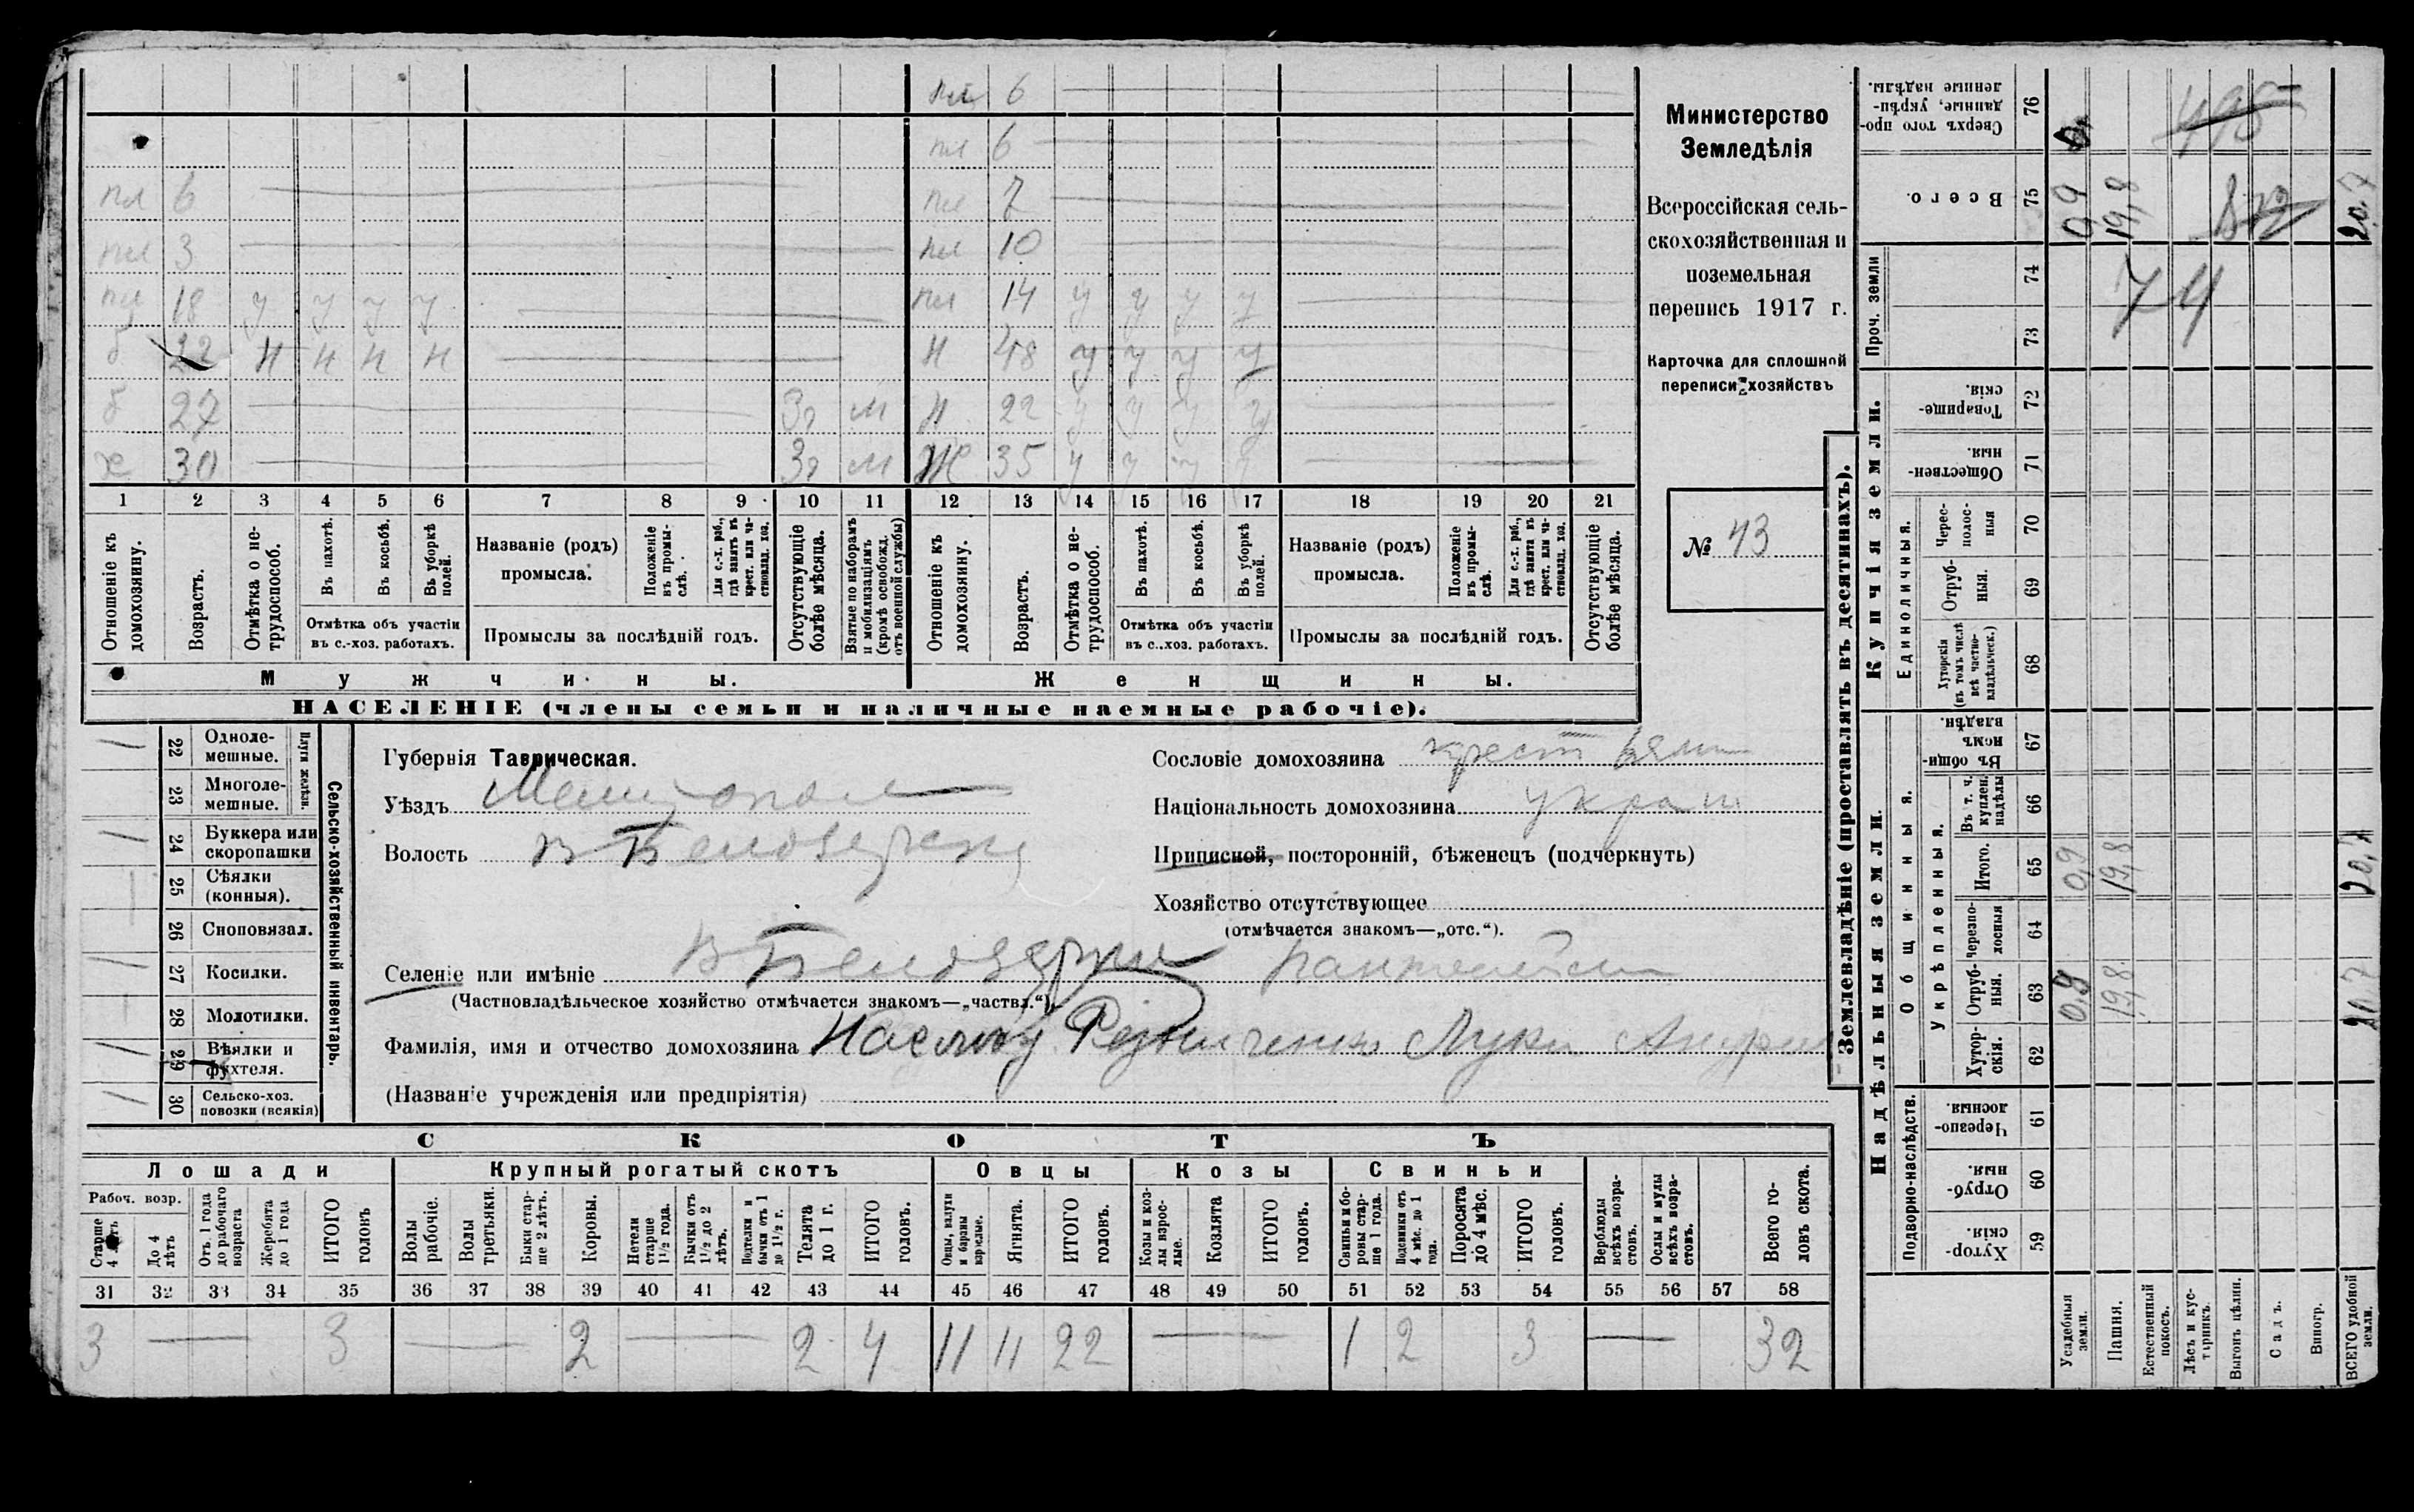 пл 6
пл 6
пл 6 пл 7
пл 3 пл 10
пл 18 у у у у пл 14 у у у у
б 22 н н н н н 48 у у у у
б 27 Зя м н 22 у у у у
х 30 Зя м Ж 35 у у у у
1 2 3 4 5 6 7 8 9 10 11 12 13 14 15 16 17 18 19 20 21
Отношеніе къ домохозяину.
Возрастъ.
Отмѣтка о не-трудоспособ.
Въ пахотѣ.
Въ косьбѣ.
Въ уборкѣ полей.
Отмѣтка объ участіи въ с.-хоз. работахъ.
Названіе (родъ) промысла.
Положеніе въ промы-слѣ.
Для с.-х. раб., гдѣ занятъ въ крест. или ча-стновлад. хоз.
Промыслы за послѣдній годъ.
Отсутствующіе болѣе мѣсяца.
Взятые по наборамъ и мобилизаціямъ (кромѣ освобожд. отъ военной службы)
Отношеніе къ домохозяину.
Возрастъ.
Отмѣтка о не-трудоспособ.
Въ пахотѣ.
Въ косьбѣ.
Въ уборкѣ полей.
Отмѣтка объ участіи въ с..хоз. работахъ.
Названіе (родъ) промысла.
Положеніе въ промы-слѣ.
Для с.-х. раб., гдѣ занята въ крест. или ча-стновлад. хоз.
Промыслы за послѣдній годъ.
Отсутствующіе болѣе мѣсяца.
Мужчины. Женщины.
НАСЕЛЕНІЕ (члены семьи и наличные наемные рабочіе).
Министерство
Земледѣлія
Всероссійская сель-
скохозяйственная и
поземельная
перепись 1917 г.
Карточка для сплошной
переписи хозяйствъ
№ 43
22 Одноле-мешные.
23 Многоле-мешные.
Плуги желѣзн.
24 Буккера или скоропашки
25 Сѣялки (конныя).
26 Сноповязал.
27 Косилки.
28 Молотилки.
29 Вѣялки и фухтеля.
30 Сельско-хоз. повозки (всякія)
Сельско-хозяйственный инвентарь.
Губернія Таврическая.
Уѣздъ Мелитопол
Волость В Белозерск
Селеніе или имѣніе В Белозерка
(Частновладѣльческое хозяйство отмѣчается знакомъ—„частвл.“).
Фамилія, имя и отчество домохозяина Резниченко Лука Андрее
(Названіе учрежденія или предпріятія)
Сословіе домохозяина крестьян
Національность домохозяина украи
Приписной, посторонній, бѣженецъ (подчеркнуть)
Хозяйство отсутствующее
(отмѣчается знакомъ—„отс.“).
СКОТЪ
Лошади Крупный рогатый скотъ Овцы Козы Свиньи
Рабоч. возр.
Старше 4 лѣтъ
До 4 лѣтъ
Отъ 1 года до рабочаго возраста
Жеребята до 1 года
ИТОГО головъ
Волы рабочіе.
Волы третьяки.
Быки стар-ше 2 лѣтъ.
Коровы.
Нетели старше 1½ года.
Бычки отъ 1½ до 2 лѣтъ.
Подтелки и бычки отъ 1 до 1½ г.
Телята до 1 г.
ИТОГО головъ.
Овцы, валухи и бараны взрослые.
Ягнята.
ИТОГО головъ.
Козы и коз-лы взрос-лые.
Козлята
ИТОГО головъ.
Свиньи и бо-ровы стар-ше 1 года.
Подсвинки отъ 4 мѣс. до 1 года.
Поросята до 4 мѣс.
ИТОГО головъ.
Верблюды всѣхъ возра-стовъ.
Ослы и мулы всѣхъ возра-стовъ.
Всего го-ловъ скота.
31 32 33 34 35 36 37 38 39 40 41 42 43 44 45 46 47 48 49 50 51 52 53 54 55 56 57 58
3 3 2 2 4 11 11 22 1 2 3 32
Землевладѣніе (проставлять въ десятинахъ).
Надѣльныя земли. Купчія земли.
Проч. земли
Подворно-наслѣдств.
Общинныя.
Укрѣпленныя.
Единоличныя.
76 Сверхъ того про-данные, укрѣп-ленные надѣлы.
75 Всего. 0,9 19,8 20,7
74
73
74
72 Товарище-скія.
71 Обществен-ныя.
70 Черес-полос-ныя
69 Отруб-ныя.
68 Хуторскія (въ томъ числѣ всѣ частно-владѣльческ.)
67 Въ общин-номъ владѣн.
66 Въ т. ч. куплен. надѣлы
65 Итого. 0,9 19,8 20,7
64 Черезпо-лосныя
63 Отруб-ныя. 0,9 19,8 20,7
62 Хутор-скія.
61 Черезпо-лосныя.
60 Отруб-ныя.
59 Хутор-скія.
Усадебныя земли.
Пашня.
Естественный покосъ.
Лѣсъ и кус-тарникъ.
Выгонъ цѣлин.
Садъ.
Виногр.
ВСЕГО удобной земли.